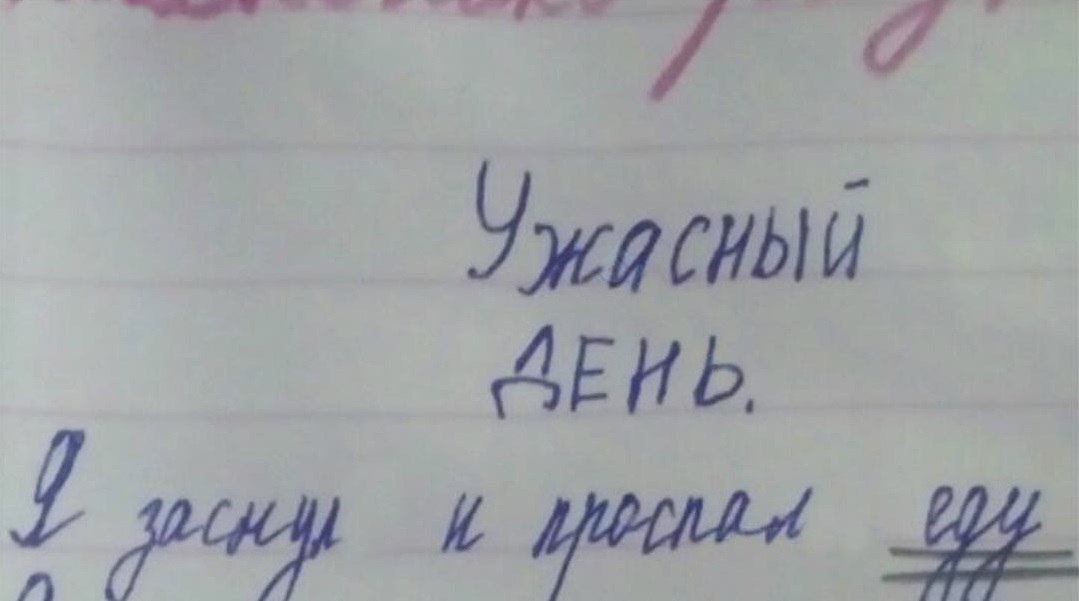 Ужасный
ДЕНЬ.
Я заснул и проспал еду